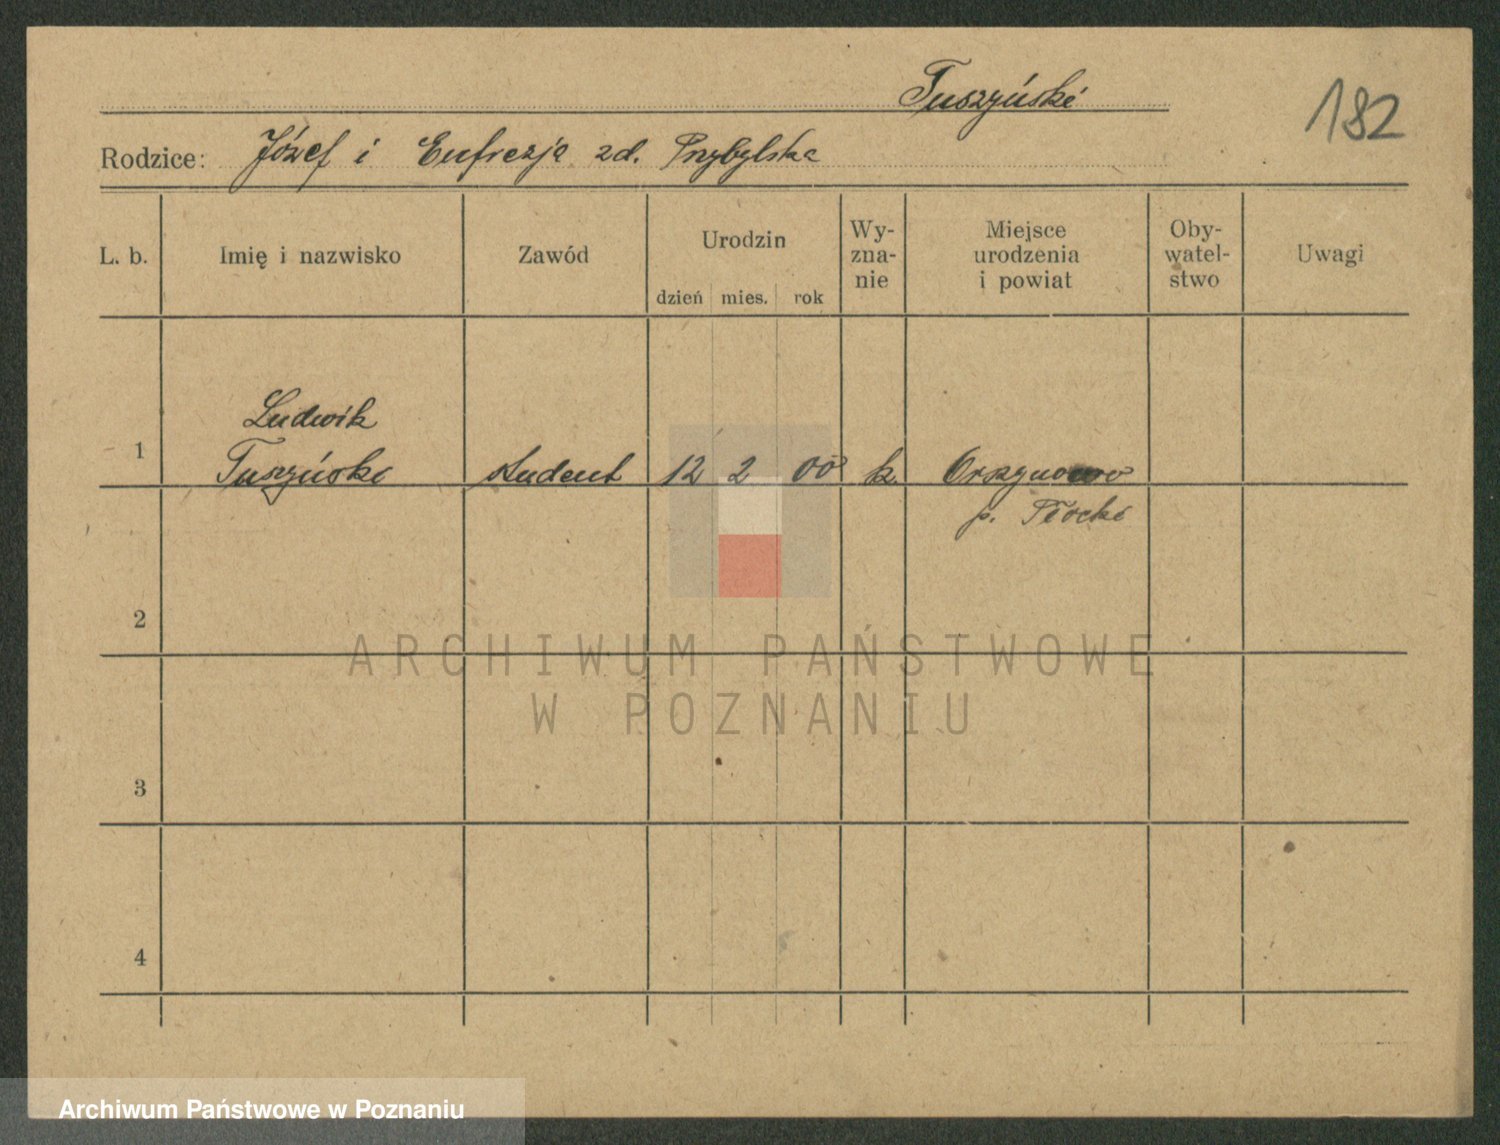 Tuszyński
182
Rodzice: Józef i Eufrezja zd. Przybylska
L. b. Imię i nazwisko Zawód Urodzin Wy-zna-nie Miejsce urodzenia i powiat Oby-watel-stwo Uwagi
dzień mies. rok
Ludwik
1 Tuszyński student 12 2 00 k. Orszymowo
p. Płocki
2
ARCHIWUM PAŃSTWOWE
W POZNANIU
3
4
Archiwum Państwowe w Poznaniu